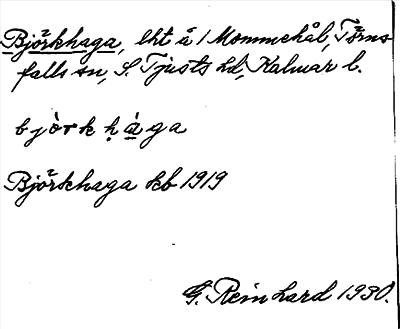 Björkhaga, lht å 1 Mommehål, Törns-
falls sn, S. Tjusts hd, Kalmar l.
bjòrkḥàga
Björkhaga kb 1919
G. Reinhard 1930.